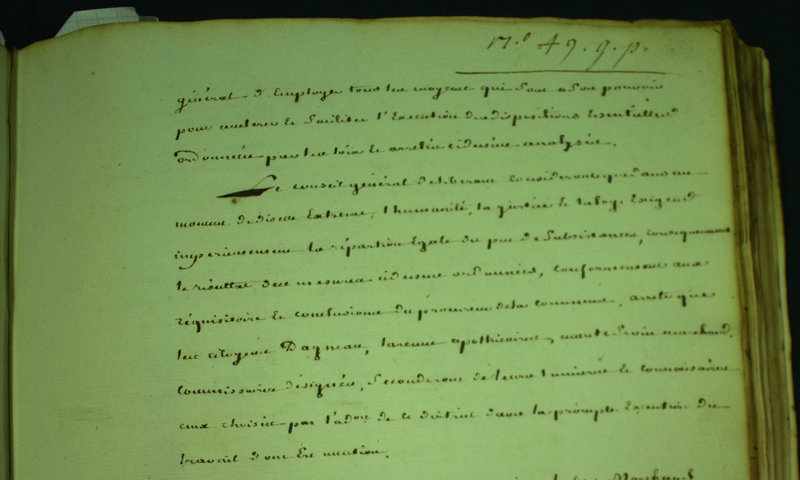 17.e 49. g. p.
général d'Employer tous les moyens qui sont a son pouvoir
pour accelerer et faciliter l'Execution des dispositions Essentielles
ordonnées par les loix et arretés cidessus analysés.
Le conseil général deliberant considerant que dans un
moment de disette Extreme, l'humanité, la justice et la loy Exigent
imperieusement la répartion Egale du peu de subsistances, consequemment
le résultat des mesures cidessus ordonnées, conformement aux
réquisitoire et conclusions du procureur de la commune, arrete que
les citoyens Dagneau, apothicaires, marchand,
commissaires désignés, seconderont de leurs lumieres et connaissances
ceux choisis par l'adon. de ce district dans la prompte Execution du
travail dont Est mention.